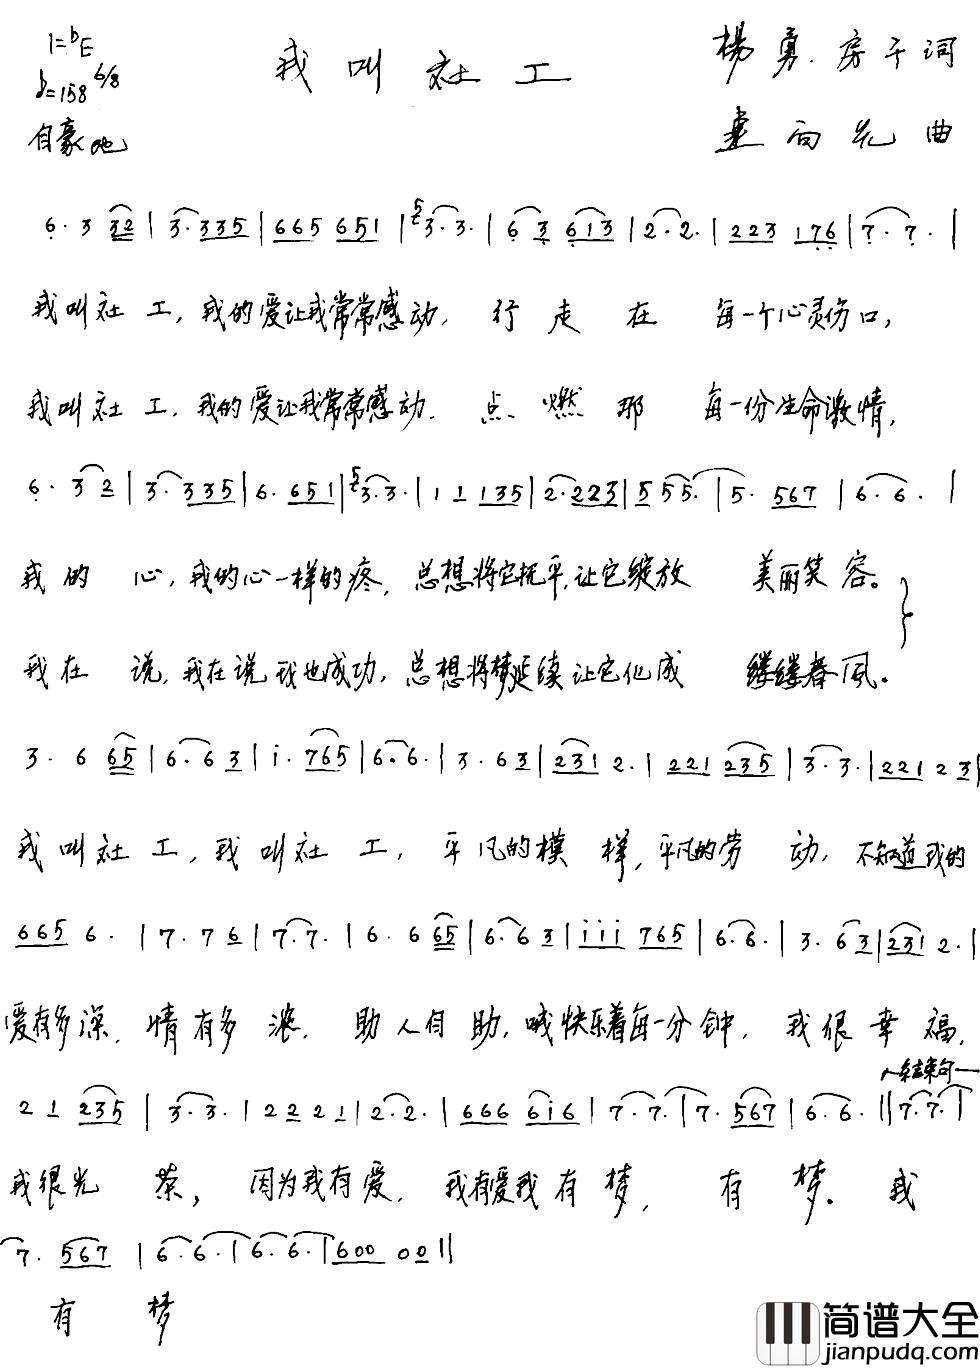 1=♭E
我叫社工
杨勇.房千词
♪=158 6/8
自豪地
孟向光曲
6· 3 32 | 3·335 | 665 651 | 3·3· | 6 3 613 | 2·2· | 223 176 | 7·7· |
我叫社工,我的爱让我常常感动,行走在每一个心灵伤口,
我叫社工,我的爱让我常常感动.点燃那每一份生命激情,
6· 3 2 | 3·335 | 6·651 | 3·3· | 1 1 135 | 2·223 | 5 5 5· | 5· 567 | 6·6· |
我的心,我的心一样的疼,总想将它抚平,让它绽放美丽笑容。
我在说,我在说我也成功,总想将梦延续让它化成缕缕春风。
3· 6 65 | 6·6 3 | i· 765 | 6·6· | 3· 6 3 | 231 2· | 221 235 | 3·3· | 221 2 3 |
我叫社工,我叫社工,平凡的模样,平凡的劳动,不知道我的
665 6· | 7·7 6 | 7·7· | 6· 6 65 | 6·6 3 | iii 765 | 6·6· | 3· 6 3 | 231 2· |
爱有多深,情有多浓.助人自助,喊快乐着每一分钟,我很幸福,
结束句
2 1 235 | 3·3· | 2 2 2 1 | 2·2· | 666 6i6 | 7·7· | 7· 567 | 6·6· || 7·7· |
我很光荣,因为我有爱.我有爱我有梦,有梦。我
7· 567 | 6·6· | 6·6· | 600 00 ||
有梦
简谱大全
jianpudq.com